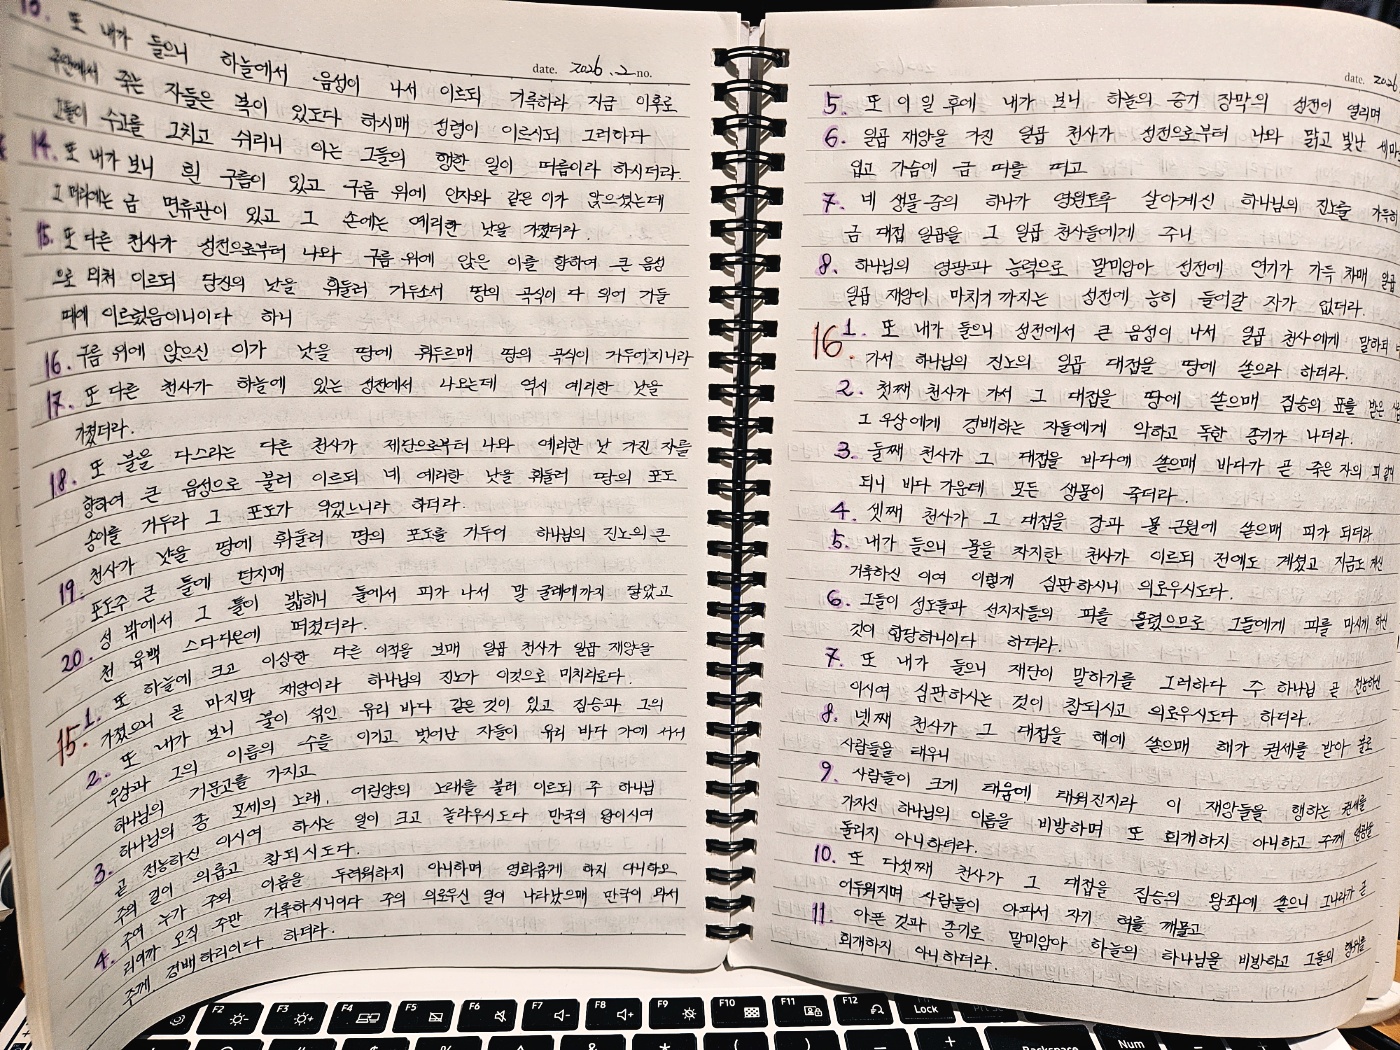 date. 2026. 2 no.
13. 또 내가 들으니 하늘에서 음성이 나서 이르되 기록하라 지금 이후로
주안에서 죽는 자들은 복이 있도다 하시매 성령이 이르시되 그러하다
그들이 수고를 그치고 쉬리니 이는 그들의 행한 일이 따름이라 하시더라.
14. 또 내가 보니 흰 구름이 있고 구름 위에 인자와 같은 이가 앉으셨는데
그 머리에는 금 면류관이 있고 그 손에는 예리한 낫을 가졌더라.
15. 또 다른 천사가 성전으로부터 나와 구름 위에 앉은 이를 향하여 큰 음성
으로 외쳐 이르되 당신의 낫을 휘둘러 거두소서 땅의 곡식이 다 익어 거둘
때에 이르렀음이니이다 하니
16. 구름 위에 앉으신 이가 낫을 땅에 휘두르매 땅의 곡식이 거두어지니라
17. 또 다른 천사가 하늘에 있는 성전에서 나오는데 역시 예리한 낫을
가졌더라.
18. 또 불을 다스리는 다른 천사가 제단으로부터 나와 예리한 낫 가진 자를
향하여 큰 음성으로 불러 이르되 네 예리한 낫을 휘둘러 땅의 포도
송이를 거두라 그 포도가 익었느니라 하더라.
19. 천사가 낫을 땅에 휘둘러 땅의 포도를 거두어 하나님의 진노의 큰
포도주 큰 틀에 던지매
20. 성 밖에서 그 틀이 밟히니 틀에서 피가 나서 말 굴레에까지 닿았고
천 육백 스다디온에 퍼졌더라.
15. 1. 또 하늘에 크고 이상한 다른 이적을 보매 일곱 천사가 일곱 재앙을
가졌으니 곧 마지막 재앙이라 하나님의 진노가 이것으로 마치리로다.
2. 또 내가 보니 불이 섞인 유리 바다 같은 것이 있고 짐승과 그의
우상과 그의 이름의 수를 이기고 벗어난 자들이 유리 바다 가에 서서
하나님의 거문고를 가지고
3. 하나님의 종 모세의 노래, 어린양의 노래를 불러 이르되 주 하나님
곧 전능하신 이시여 하시는 일이 크고 놀라우시도다 만국의 왕이시여
주의 길이 의롭고 참되시도다.
4. 주여 누가 주의 이름을 두려워하지 아니하며 영화롭게 하지 아니하오
리이까 오직 주만 거룩하시니이다 주의 의로우신 일이 나타났으매 만국이 와서
주께 경배하리이다 하더라.
date. 2026
5. 또 이 일 후에 내가 보니 하늘의 증거 장막의 성전이 열리며
6. 일곱 재앙을 가진 일곱 천사가 성전으로부터 나와 맑고 빛난 세마
입고 가슴에 금 띠를 띠고
7. 네 생물 중의 하나가 영원토록 살아계신 하나님의 진노를 가득히
금 대접 일곱을 그 일곱 천사들에게 주니
8. 하나님의 영광과 능력으로 말미암아 성전에 연기가 가득 차매 일곱
일곱 재앙이 마치기까지는 성전에 능히 들어갈 자가 없더라.
16. 1. 또 내가 들으니 성전에서 큰 음성이 나서 일곱 천사에게 말하되
가서 하나님의 진노의 일곱 대접을 땅에 쏟으라 하더라.
2. 첫째 천사가 가서 그 대접을 땅에 쏟으매 짐승의 표를 받은
그 우상에게 경배하는 자들에게 악하고 독한 종기가 나더라.
3. 둘째 천사가 그 대접을 바다에 쏟으매 바다가 곧 죽은 자의 피 같이
되니 바다 가운데 모든 생물이 죽더라.
4. 셋째 천사가 그 대접을 강과 물 근원에 쏟으매 피가 되더라
5. 내가 들으니 물을 차지한 천사가 이르되 전에도 계셨고 지금도 계신
거룩하신 이여 이렇게 심판하시니 의로우시도다.
6. 그들이 성도들과 선지자들의 피를 흘렸으므로 그들에게 피를 마시게 하신
것이 합당하니이다 하더라.
7. 또 내가 들으니 제단이 말하기를 그러하다 주 하나님 곧 전능하신
이시여 심판하시는 것이 참되시고 의로우시도다 하더라.
8. 넷째 천사가 그 대접을 해에 쏟으매 해가 권세를 받아 불로
사람들을 태우니
9. 사람들이 크게 태움에 태워진지라 이 재앙들을 행하는 권세를
가지신 하나님의 이름을 비방하며 또 회개하지 아니하고 주께 영광을
돌리지 아니하더라.
10. 또 다섯째 천사가 그 대접을 짐승의 왕좌에 쏟으니 그 나라가 곧
어두워지며 사람들이 아파서 자기 혀를 깨물고
11. 아픈 것과 종기로 말미암아 하늘의 하나님을 비방하고 그들의 행위를
회개하지 아니하더라.
F2
F3
F4
F5
F6
F7
F8
F9
F10
F11
F12
Lock
Backspace
Num